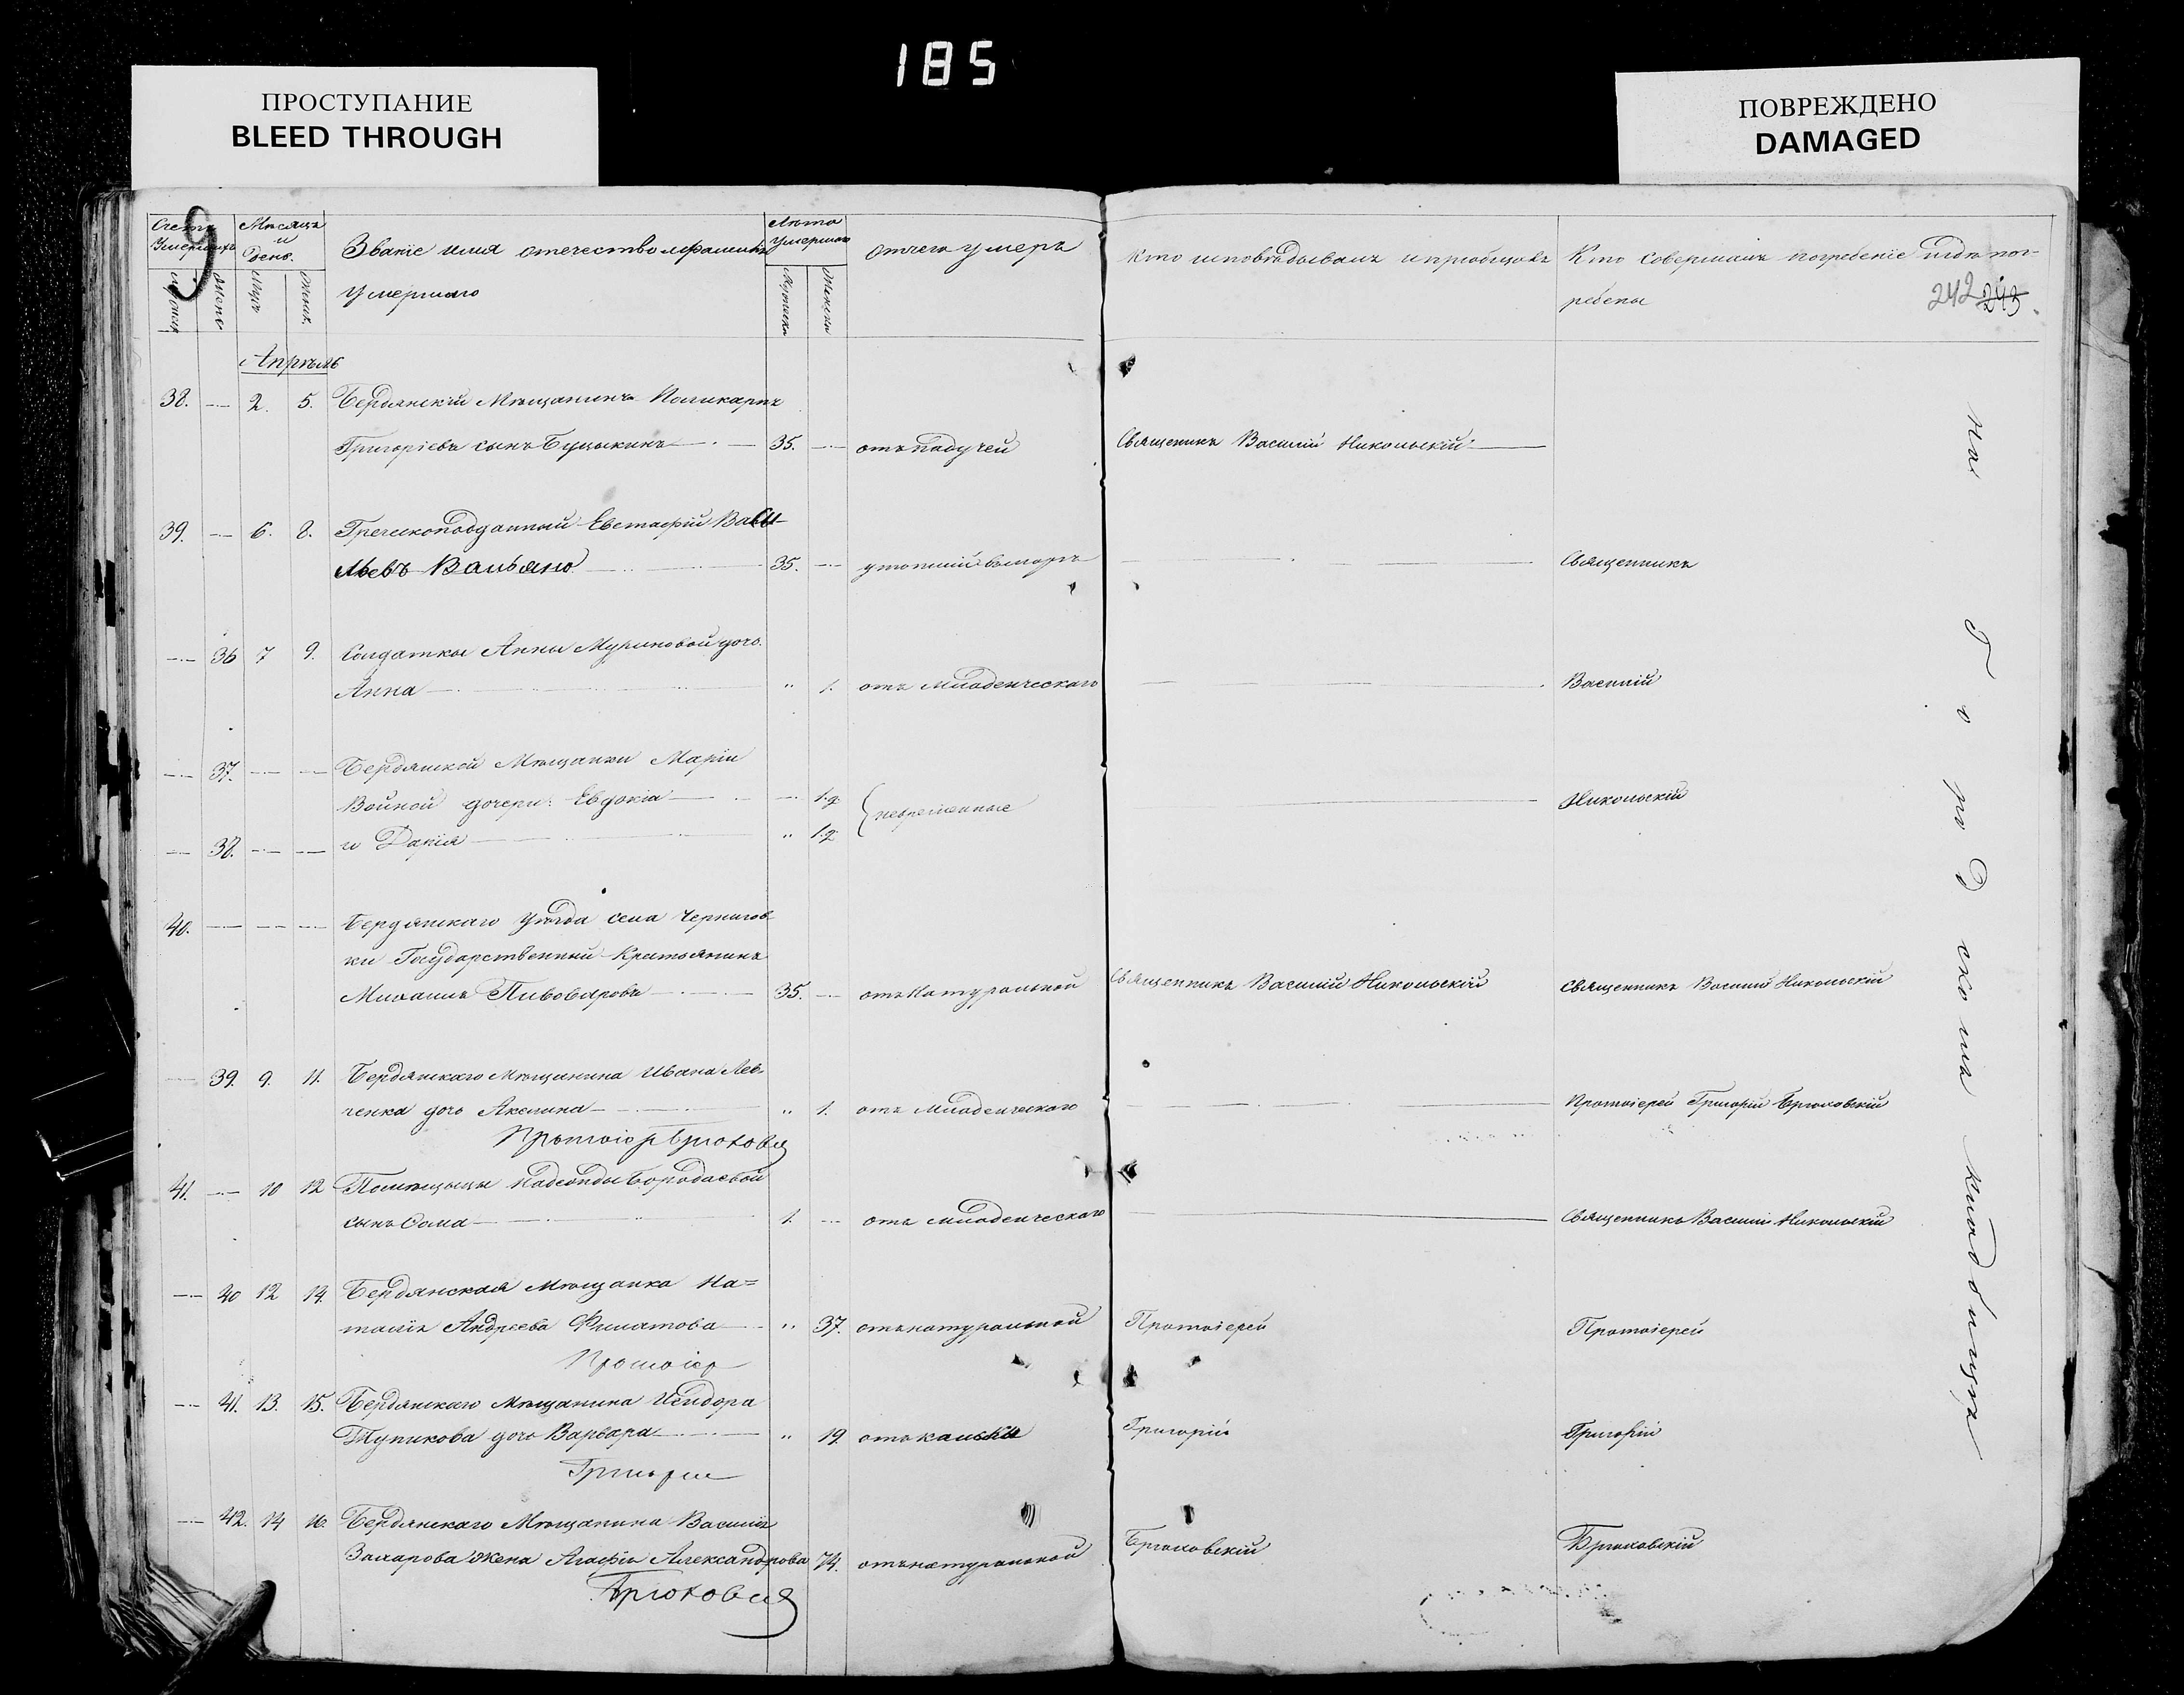 185
ПРОСТУПАНИЕ
BLEED THROUGH
ПОВРЕЖДЕНО
DAMAGED
9
Счетъ Умершихъ
Мѣсяцъ и День.
Званіе имя отечество и фамилія
Умершаго
Лѣта Умершаго
Отчего умеръ
Кто исповѣдывалъ и пріобщалъ
Кто совершалъ погребеніе и гдѣ пог-
ребены
242 243.
Апрѣль
38. 2. 5. Бердянскій Мѣщанинъ Поликарпъ
Григоріевъ сынъ Буцыкинъ 35. отъ падучей Священникъ Василій Никольскій
39. 6. 8. Греческоподданный Евстафій Васи-
льевъ Вальяно 35. утопшій въ морѣ Священникъ
36 7 9. Солдатки Анны Муриновой дочь
Анна " 1. отъ младенческаго Василій
37. Бердянской Мѣщанки Маріи
Войной дочери: Евдокія 1.д. Никольскій
38. и Дарія " 1.д.
40. Бердянскаго Уѣзда села Чернигов-
ки Государственный Крестьянинъ
Михаилъ Пивоваровъ 35. отъ Натуральной Священникъ Василій Никольскій Священникъ Василій Никольскій
39. 9. 11. Бердянскаго Мѣщанина Ивана Лев-
ченка дочь Акелина " 1. отъ Младенческаго Протоіерей Григорій Брюховскій
41. 10 12 Помѣщицы Надежды Бородаевой
сынъ Ѳома 1. отъ младенческаго Священникъ Василій Никольскій
40 12 14. Бердянская Мѣщанка На=
талія Андреева Филатова " 37. отъ натуральной Протоіерей Протоіерей
Протоіер
41. 13. 15. Бердянскаго Мѣщанина Исидора
Тупикова дочь Варвара " 19. отъ Григорій Григорій
Григорій
42. 14 16. Бердянскаго Мѣщанина Василія
Захарова жена Агафія Александрова 74. отъ натуральной Брюховскій Брюховскій
На городскомъ кладбищѣ